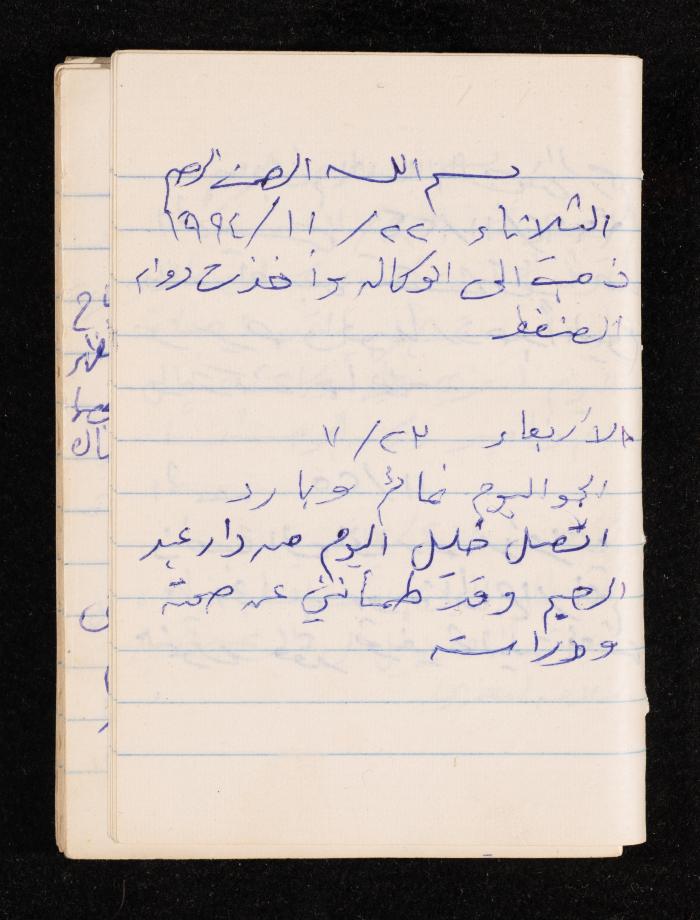 بسم الله الرحمن الرحيم
الثلاثاء ٢٢ / ١١ / ١٩٩٤
ذهبت الى الوكاله وأخذت دواء
الضغط
الاربعاء ٢٣ / ٧
الجو اليوم غائم وبارد
اتصل خليل اليوم من دار عبد
الرحيم وقد طمأنني عن صحته
ودراسته